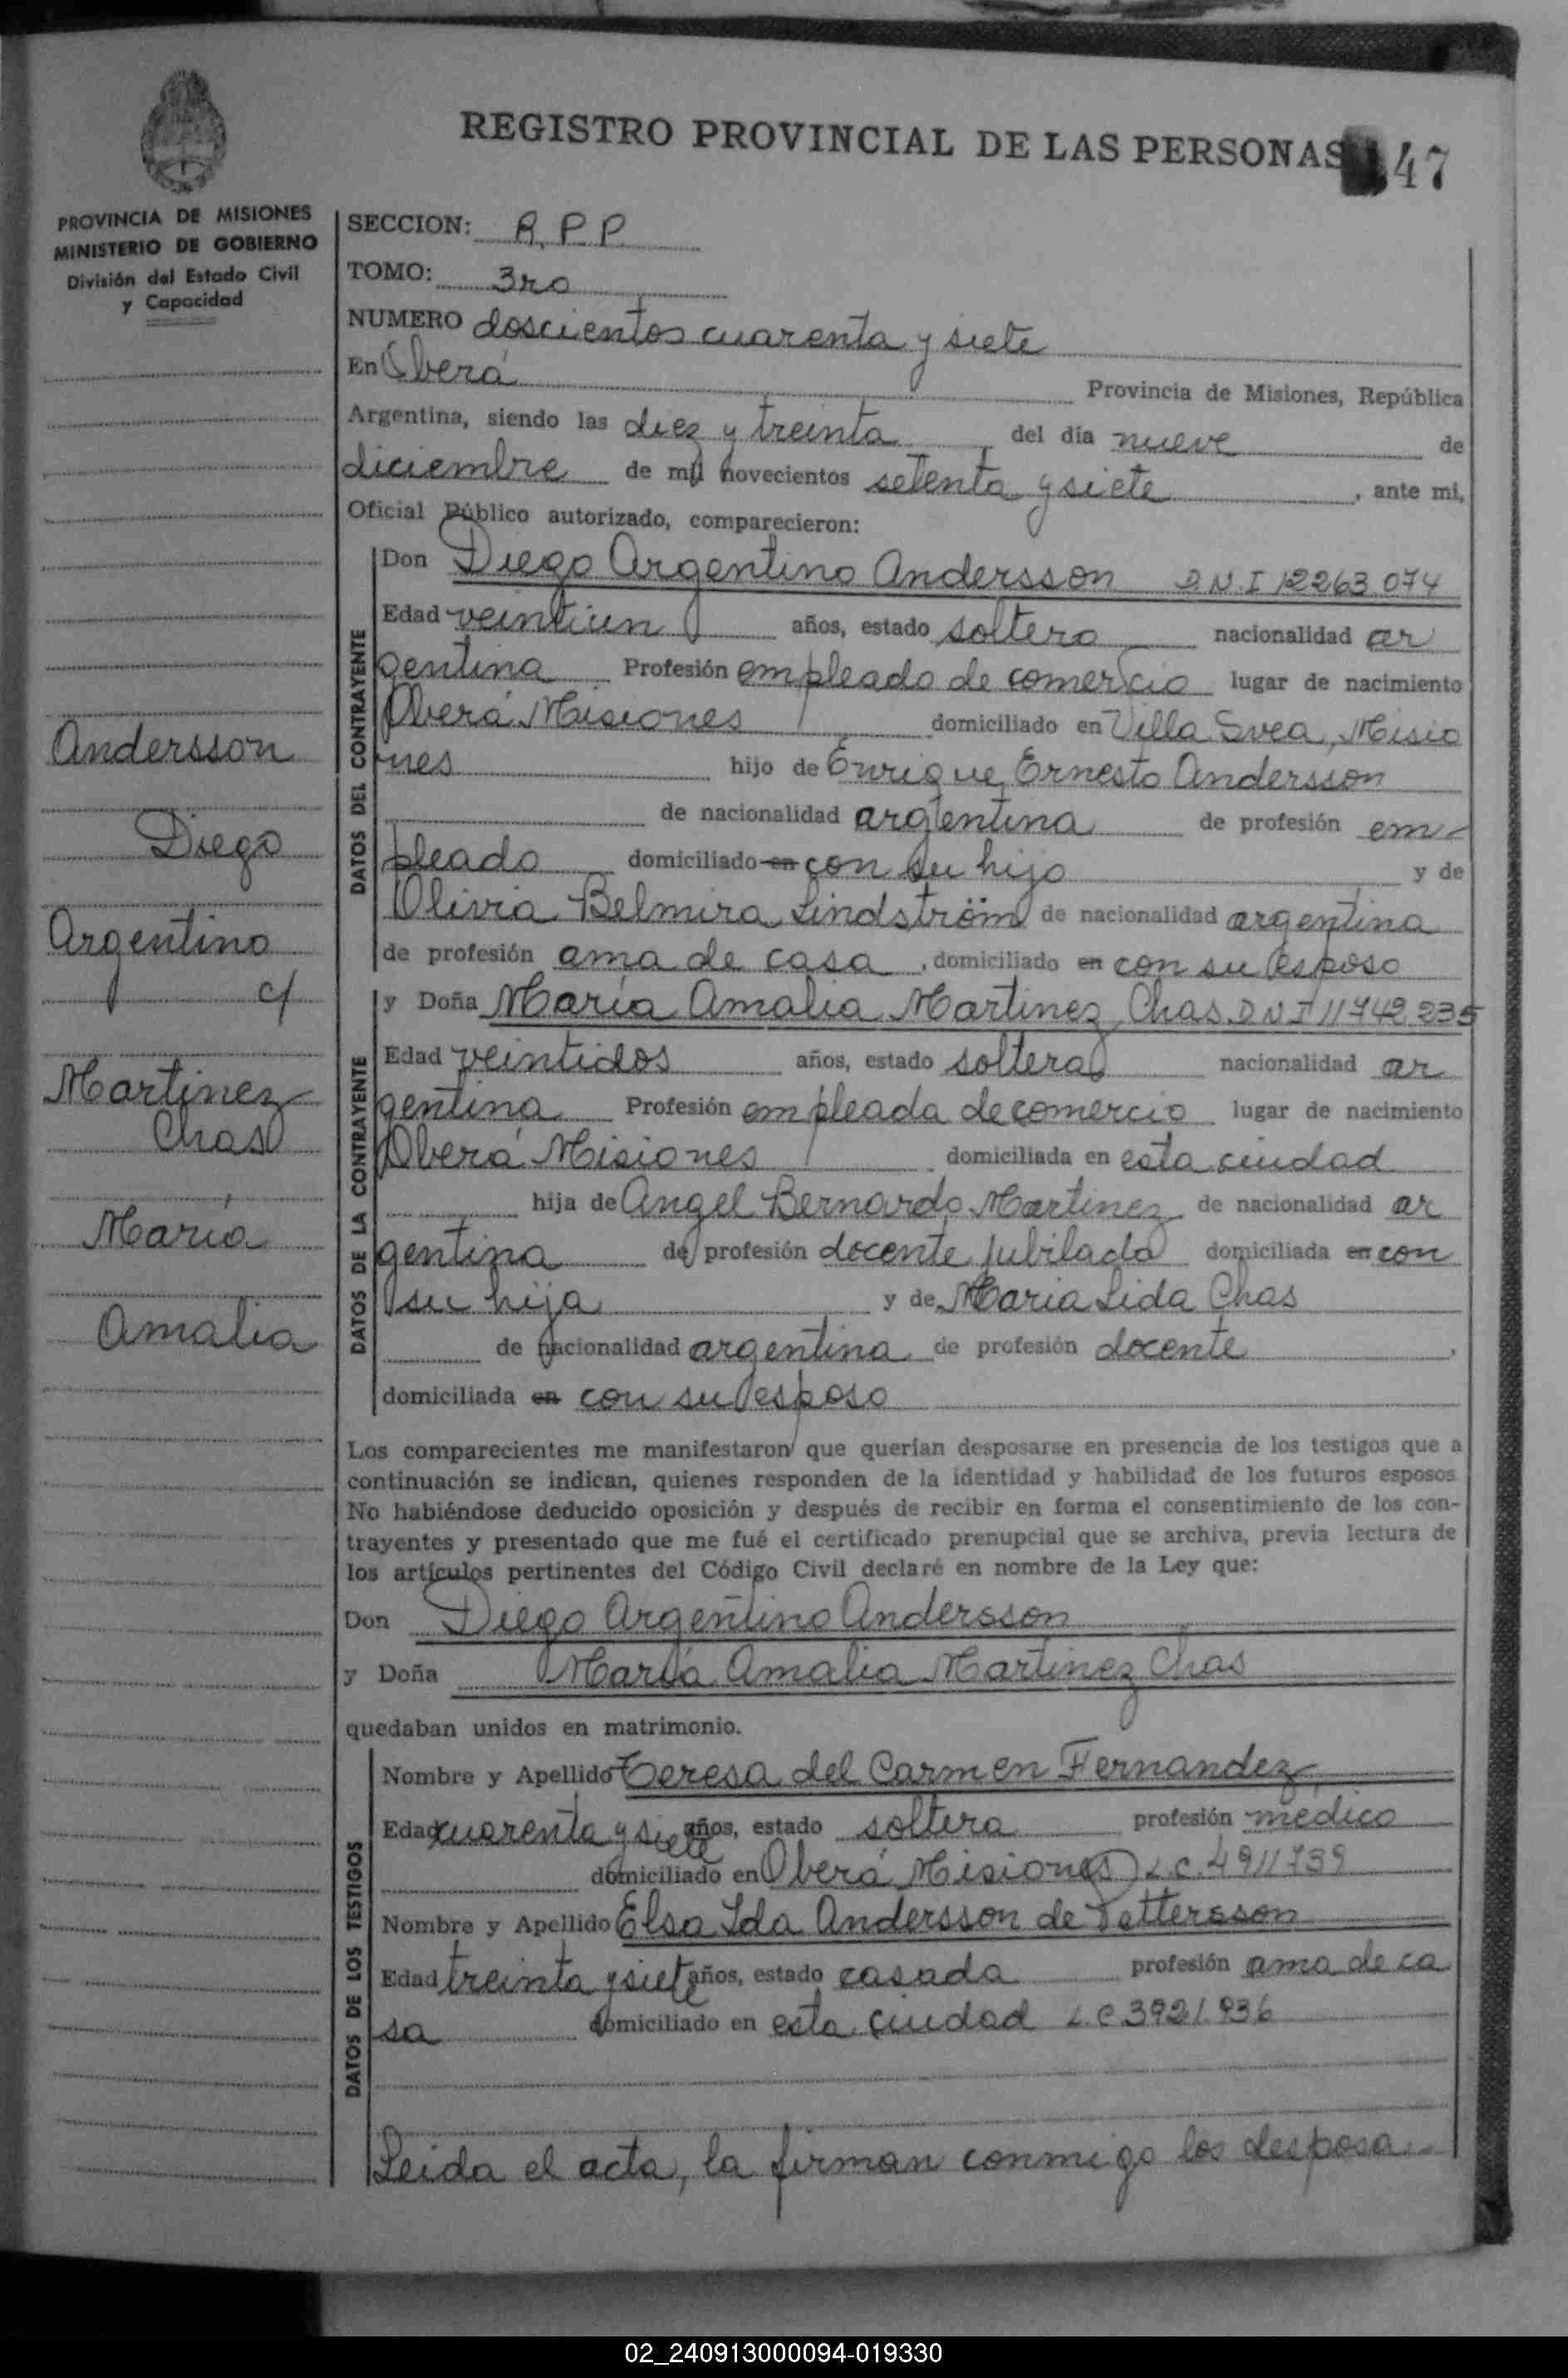 REGISTRO PROVINCIAL DE LAS PERSONAS 47
PROVINCIA DE MISIONES
MINISTERIO DE GOBIERNO
División del Estado Civil
y Capacidad
SECCION: R.P.P.
TOMO: 3ro
NUMERO doscientos cuarenta y siete
En Oberá Provincia de Misiones, República
Argentina, siendo las diez y treinta del día nueve de
diciembre de mil novecientos setenta y siete, ante mi,
Oficial Público autorizado, comparecieron:
DATOS DEL CONTRAYENTE
Don Diego Argentino Andersson D.N.I 12263.074
Edad veintiun años, estado soltero nacionalidad ar
gentina Profesión empleado de comercio lugar de nacimiento
Oberá Misiones domiciliado en Villa Svea, Misio
nes hijo de Enrique Ernesto Andersson
de nacionalidad argentina de profesión em-
pleado domiciliado en con su hijo y de
Olivia Belmira Lindström de nacionalidad argentina
de profesión ama de casa, domiciliado en con su esposo
DATOS DE LA CONTRAYENTE
y Doña María Amalia Martinez Chas D N I 11742.235
Edad veintidos años, estado soltera nacionalidad ar
gentina Profesión empleada de comercio lugar de nacimiento
Oberá Misiones domiciliada en esta ciudad
hija de Angel Bernardo Martinez de nacionalidad ar
gentina de profesión docente jubilado domiciliada en con
su hija y de Maria Lida Chas
de nacionalidad argentina de profesión docente,
domiciliada en con su esposo
Andersson
Diego
Argentino
c/
Martinez
Chas
María
Amalia
Los comparecientes me manifestaron que querían desposarse en presencia de los testigos que a
continuación se indican, quienes responden de la identidad y habilidad de los futuros esposos
No habiéndose deducido oposición y después de recibir en forma el consentimiento de los con-
trayentes y presentado que me fué el certificado prenupcial que se archiva, previa lectura de
los artículos pertinentes del Código Civil declaré en nombre de la Ley que:
Don Diego Argentino Andersson
y Doña María Amalia Martinez Chas
quedaban unidos en matrimonio.
DATOS DE LOS TESTIGOS
Nombre y Apellido Teresa del Carmen Fernandez
Edad cuarenta y siete años, estado soltera profesión médico
domiciliado en Oberá Misiones L.C. 4911739
Nombre y Apellido Elsa Ida Andersson de Pettersson
Edad treinta y siete años, estado casada profesión ama de ca
sa domiciliado en esta ciudad L.C 3921.936
Leida el acta, la firman conmigo los desposa-
02_240913000094-019330